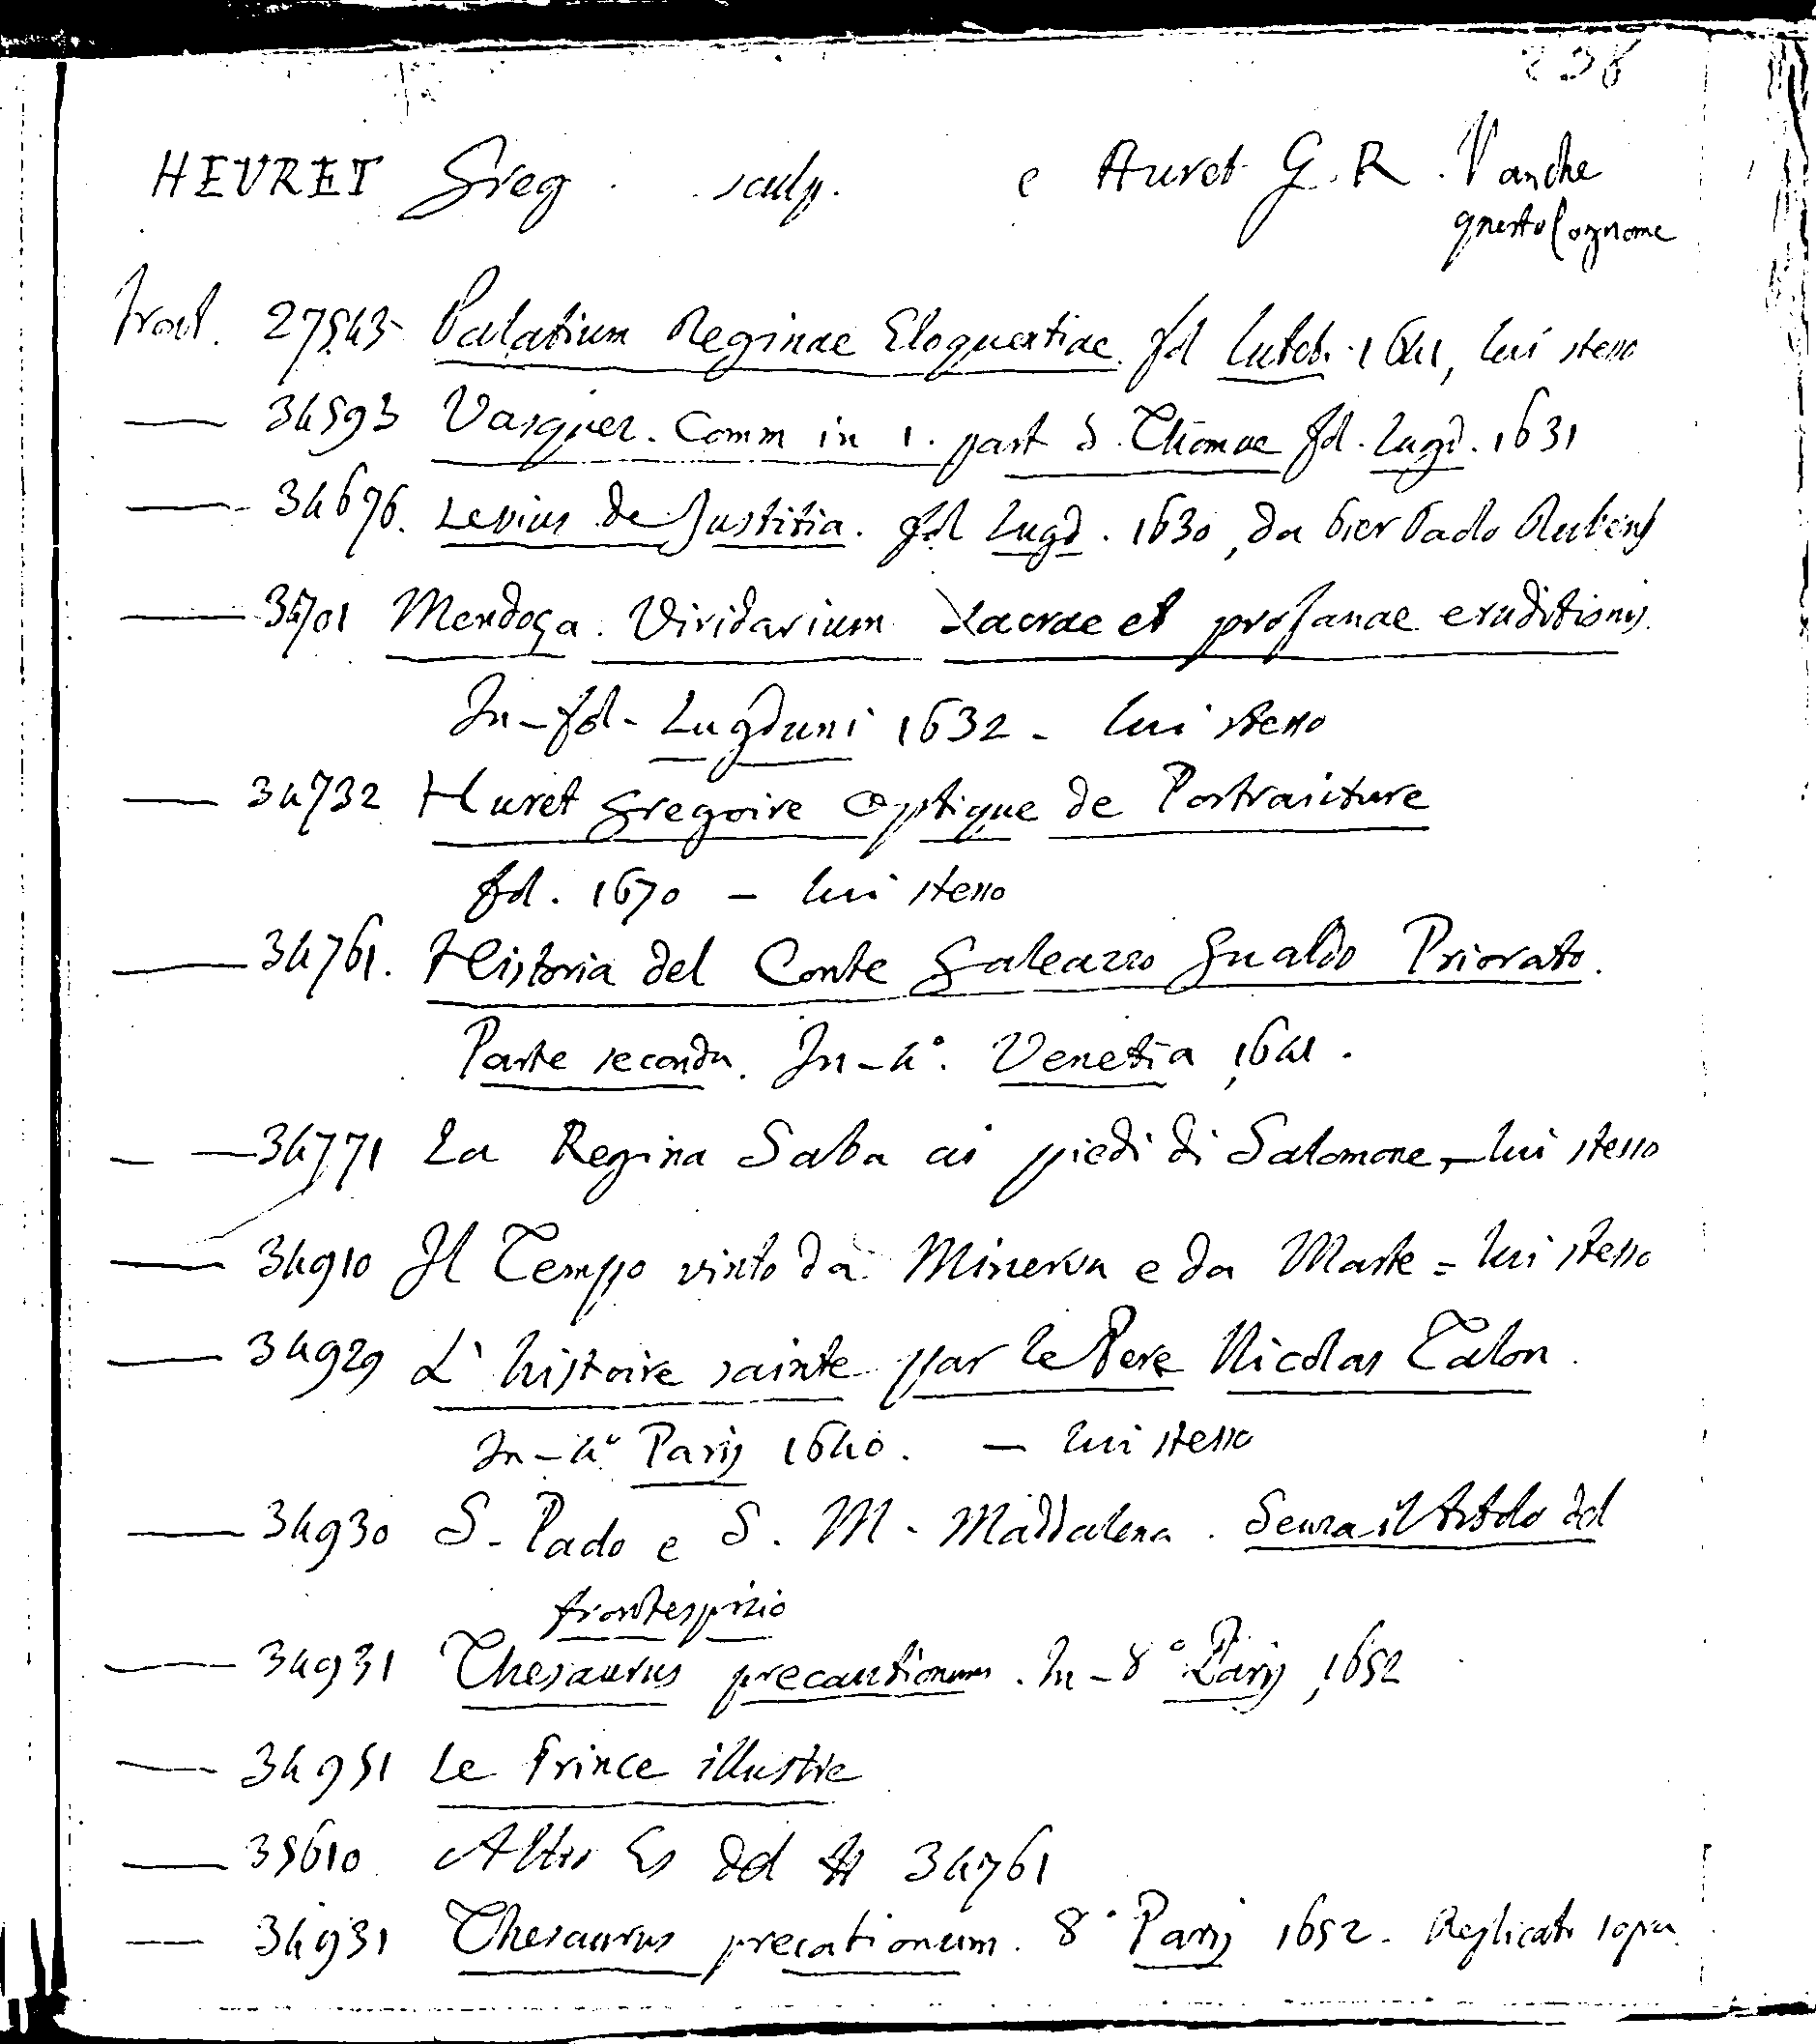 238
HEVRET Greg. sculp. e Auret G. R. V anche
questo Cognome
Front. 27543 Palatium Reginae Eloquentiae. fol Lutet. 1641, lui stesso
— 34593 Vasquez. Comm in 1. part S. Thomae fol. Lugd. 1631
— 34676. Lesius de Justitia. fol Lugd. 1630, da Pier Paolo Rubens
— 34701 Mendoça. Viridarium Sacrae et profanae eruditionis.
In-fol- Lugduni 1632 - lui stesso
— 34732 Huret Gregoire Optique de Portraicture
fol. 1670 - lui stesso
— 34761. Historia del Conte Galeazzo Gualdo Priorato.
Parte seconda. In-4°. Venetia, 1641.
— 34771 La Regina Saba ai piedi di Salomone - lui stesso
— 34910 Il Tempo vinto da Minerva e da Marte = lui stesso
— 34929 L' histoire sainte par le Pere Nicolas Talon.
In-4° Paris 1640. - lui stesso
— 34930 S. Paolo e S. M. Maddalena. Senza il titolo del
frontespizio
— 34931 Thesaurus precautionum. In-8° Paris, 1652
— 34951 Le Prince illustre
— 35610 Altro Es del # 34761
— 34931 Thesaurus precationum. 8° Paris 1652. Replicato sopra